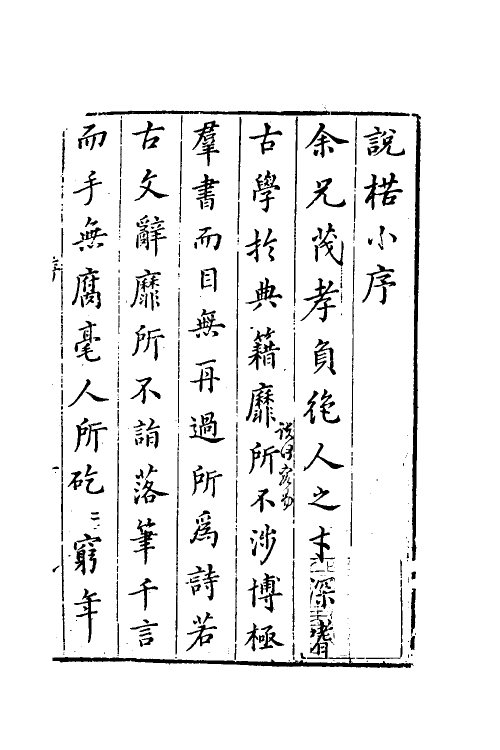 說楛小序
余兄茂孝負絶人之才深耆
古學於典籍靡所不涉博極
羣書而目無再過所爲詩若
古文辭靡所不詣落筆千言
而手無腐毫人所矻〻窮年
序